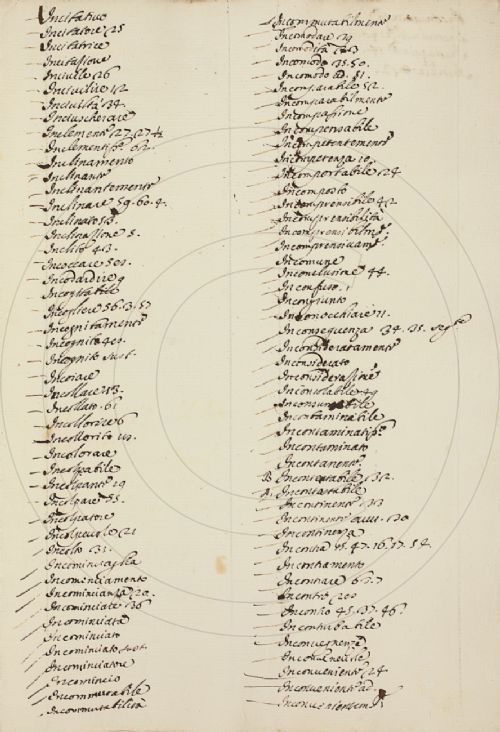 Incitativo
Incitatore 25
Incitatrice
Incitazione
Incivile 26
Incivilire 12
Inciviltà 34
Inclemente 27. 27. 4
Inclementiss.º 62.
Inclinamento
Inclinante
Inclinantemente
Inclinare 59. 60. 4.
Inclinato 53.
Inclinazione 5.
Inclito 43.
Incoccare 501.
Incodardire 9
Incogliere 56. 3. 57
Incognitamente
Incognito 401.
Incognito sust.
Incollare 13.
Incollato. 61
Incollorire 6
Incollorito
Incolorare
Incolpabile
Incolpante 19
Incolpare 55.
Incolpatore
Incolpevole 21
Incolto 31.
Incominciaglia
Incominciamento
Incominciante 20.
Incominciare 36
Incominciata
Incominciato
Incominciato sust.
Incominciatore
Incomincio
Incommutabile
Incommutabilità
Incommutabilmente
Incomodare 29
Incomodità
Incomodo 35. 50.
Incomodo ad. 51.
Incomparabile 52.
Incomparabilmente
Incompassione
Incompensabile
Incompetentemente
Incompetenza 10.
Incomportabile 24
Incomposto
Incomprensibile 42
Incomprensibilità
Incomprensibilmte.
Incomune
Inconclusione 44.
Inconfuso. 1
Incongiunto
Inconocchiare 11.
Inconseguenza 34. 35.
Inconsideratamente
Inconsiderato
Inconsiderazione
Inconsolabile 49
Inconsumabile
Incontaminabile
Incontaminatiss.º
Incontaminato
Incontanente.
B Incontrastabile 32.
A. Incontrastabile
Incontinente 33
Incontinente avv. 30
Incontinenza
Incontra 15. 47. 16. 17. 54.
Incontramento
Incontrare 6. 7
Incontro 200
Incontro 45. 37. 46.
Inconturbabile
Inconvenienza
Inconveniente 24
Inconveniente ad.